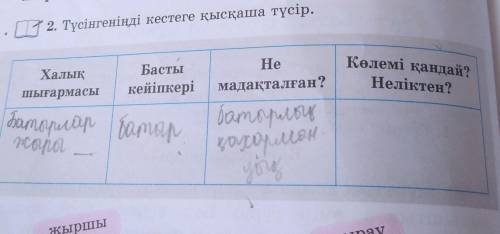 2. Түсінгеніңді кестеге қысқаша түсір.
Халық шығармасы
Басты кейіпкері
Не мадақталған?
Көлемі қандай? Неліктен?
батырлар
жыры
батыр
батырлық
жыршы